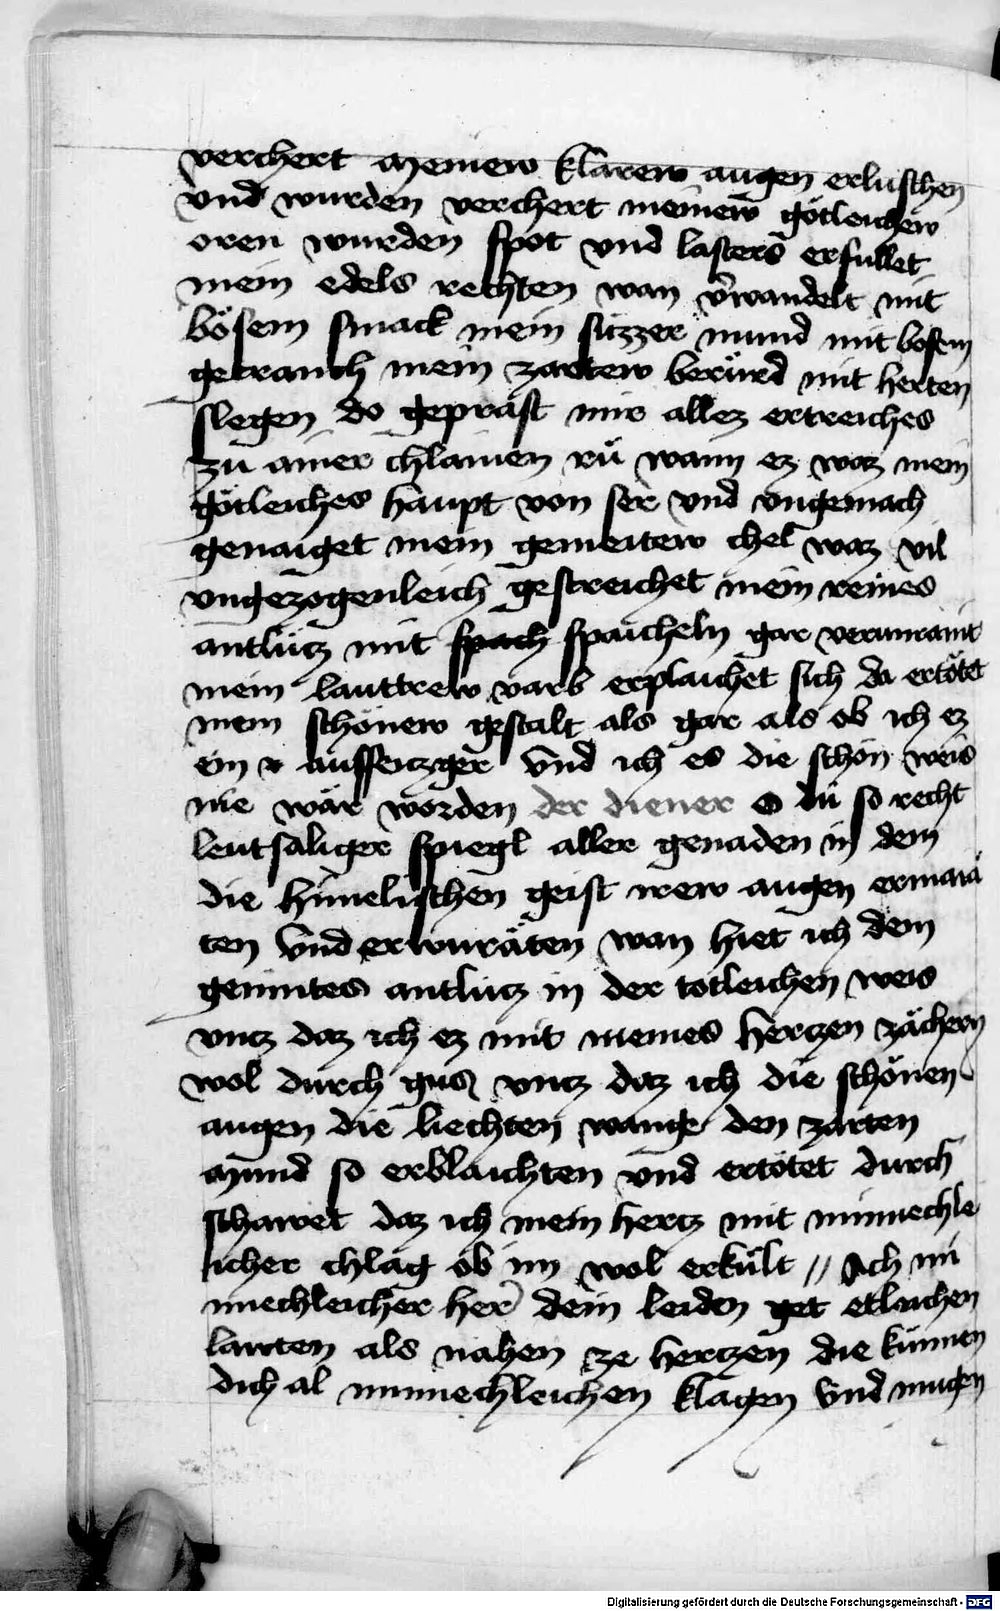 verchert meinew klarew augen erluschen
vnd wurden verchert meinew götleichew
oren wurden spot vnd lasters erfullet
mein edels rechten wan v̾wandelt mit
bösem smack mein süzzer mund mit bosem
getranch mein zartew berürd mit herten
slegen do geprast mir allez ertreiches
zu ainer chlainen rü wann ez waz mein
götleiches haupt von ser vnd vngemach
genaiget mein gemeitew chel waz vil
vngezogenleich gestreichet mein reines
antlütz mit spach spaicheln gar verunraint
mein lauttrew varb erplaichet sich da ertötet
mein schönew gestalt als gar als ob ich ez
ein aussetzger vnd ich es die schön weis
nie wär worden der diener O du so recht
leutsäliger spiegl aller genaden in dem
die himelischen geist irew augen
ten vnd wan hiet ich dem
gemintes antlütz in der totleichen weis
vntz daz ich ez mit meines hertzen zächern
wol durch gus vntz daz ich die schönen
augen die liechten wange den zarten
mund so erblaichten vnd ertötet durch
schawet daz ich mein hertz mit minnechle
icher chlag ob im wol erkült // Ach mi
nnechleicher her dein leiden get etleichen
lawten als nahen ze hertzen die künnen
dich al minnechleichen klagen vnd mugen
Digitalisierung gefördert durch die Deutsche Forschungsgemeinschaft - DFG